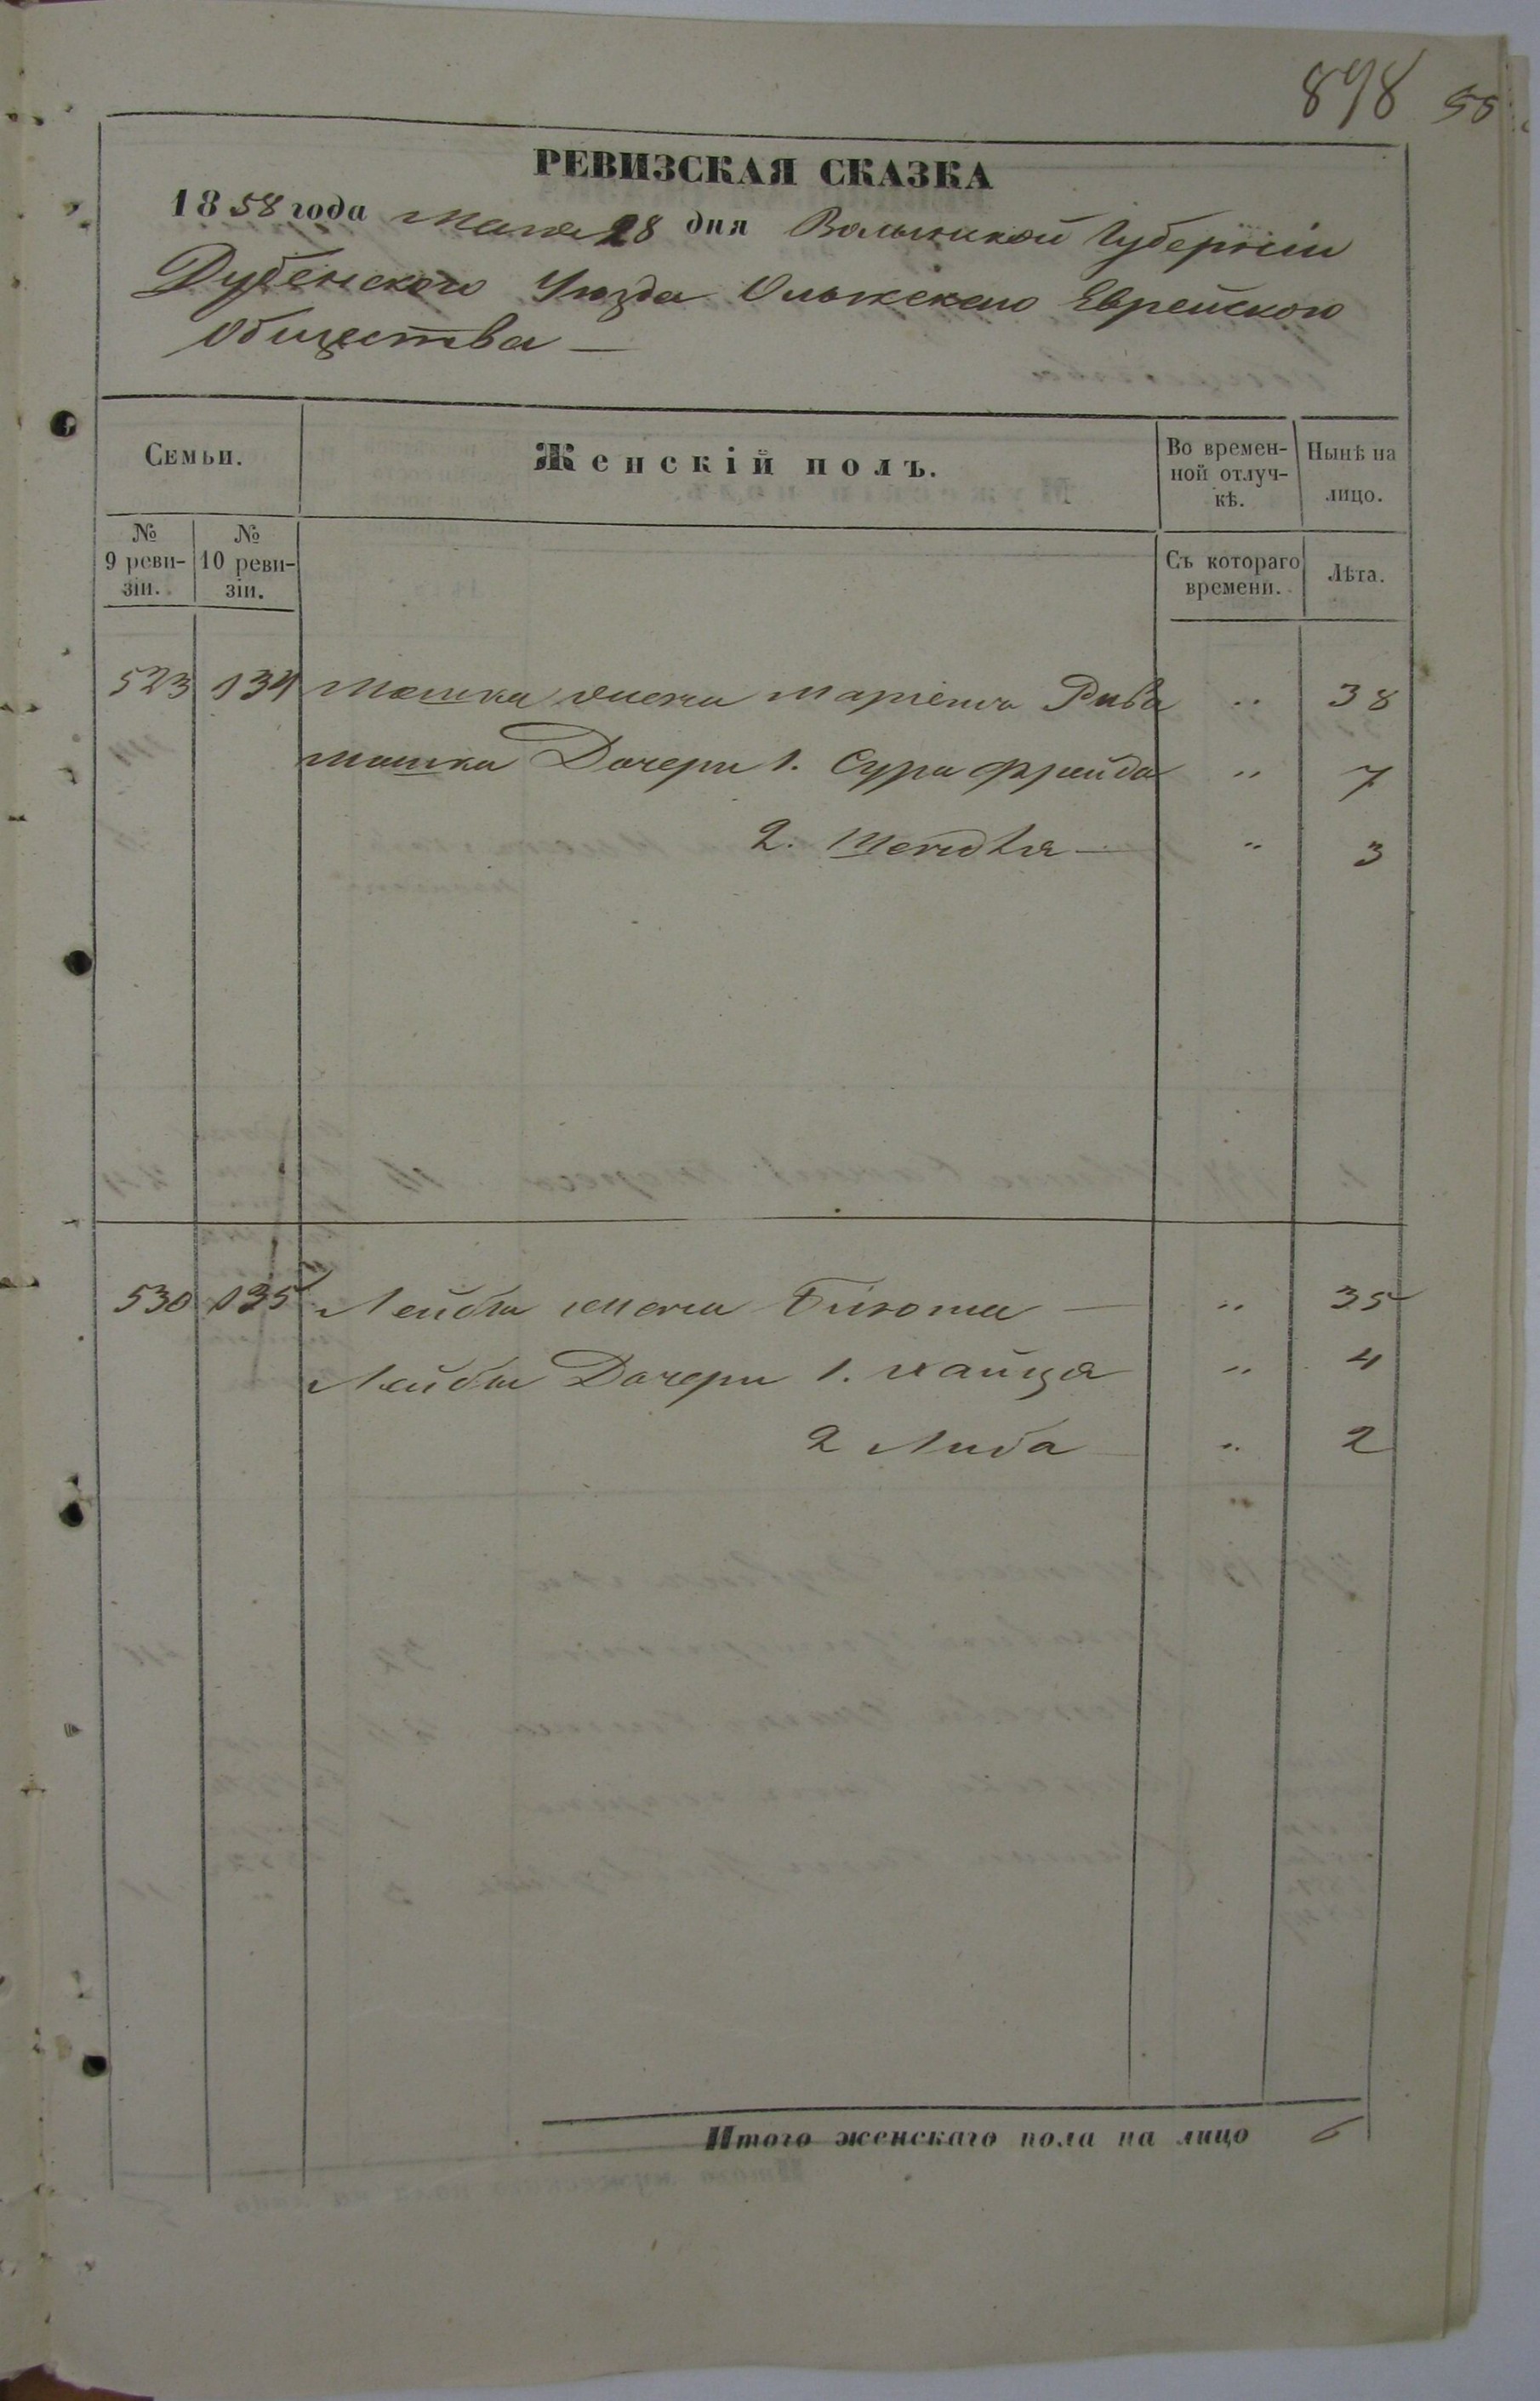 898 55
РЕВИЗСКАЯ СКАЗКА
1858 года Мая 28 дня Волынской Губернiи
Дубенского Уѣзда Олыкскаго Еврейского
Общества —
Семьи.
Женскiй полъ.
Во времен-
ной отлуч-
кѣ.
Нынѣ на
лицо.
№
9 реви-
зiи.
№
10 реви-
зiи.
Съ котораго
времени.
Лѣта.
523 134 Мошка жена Марiемъ Рива " 38
Мошка Дочери 1. Сура Фрейда " 7
2. " 3
530 135 Лейбы жена — " 35
Лейбы Дочери 1. Хайця " 4
2 Либа " 2
Итого женскаго пола на лицо 6